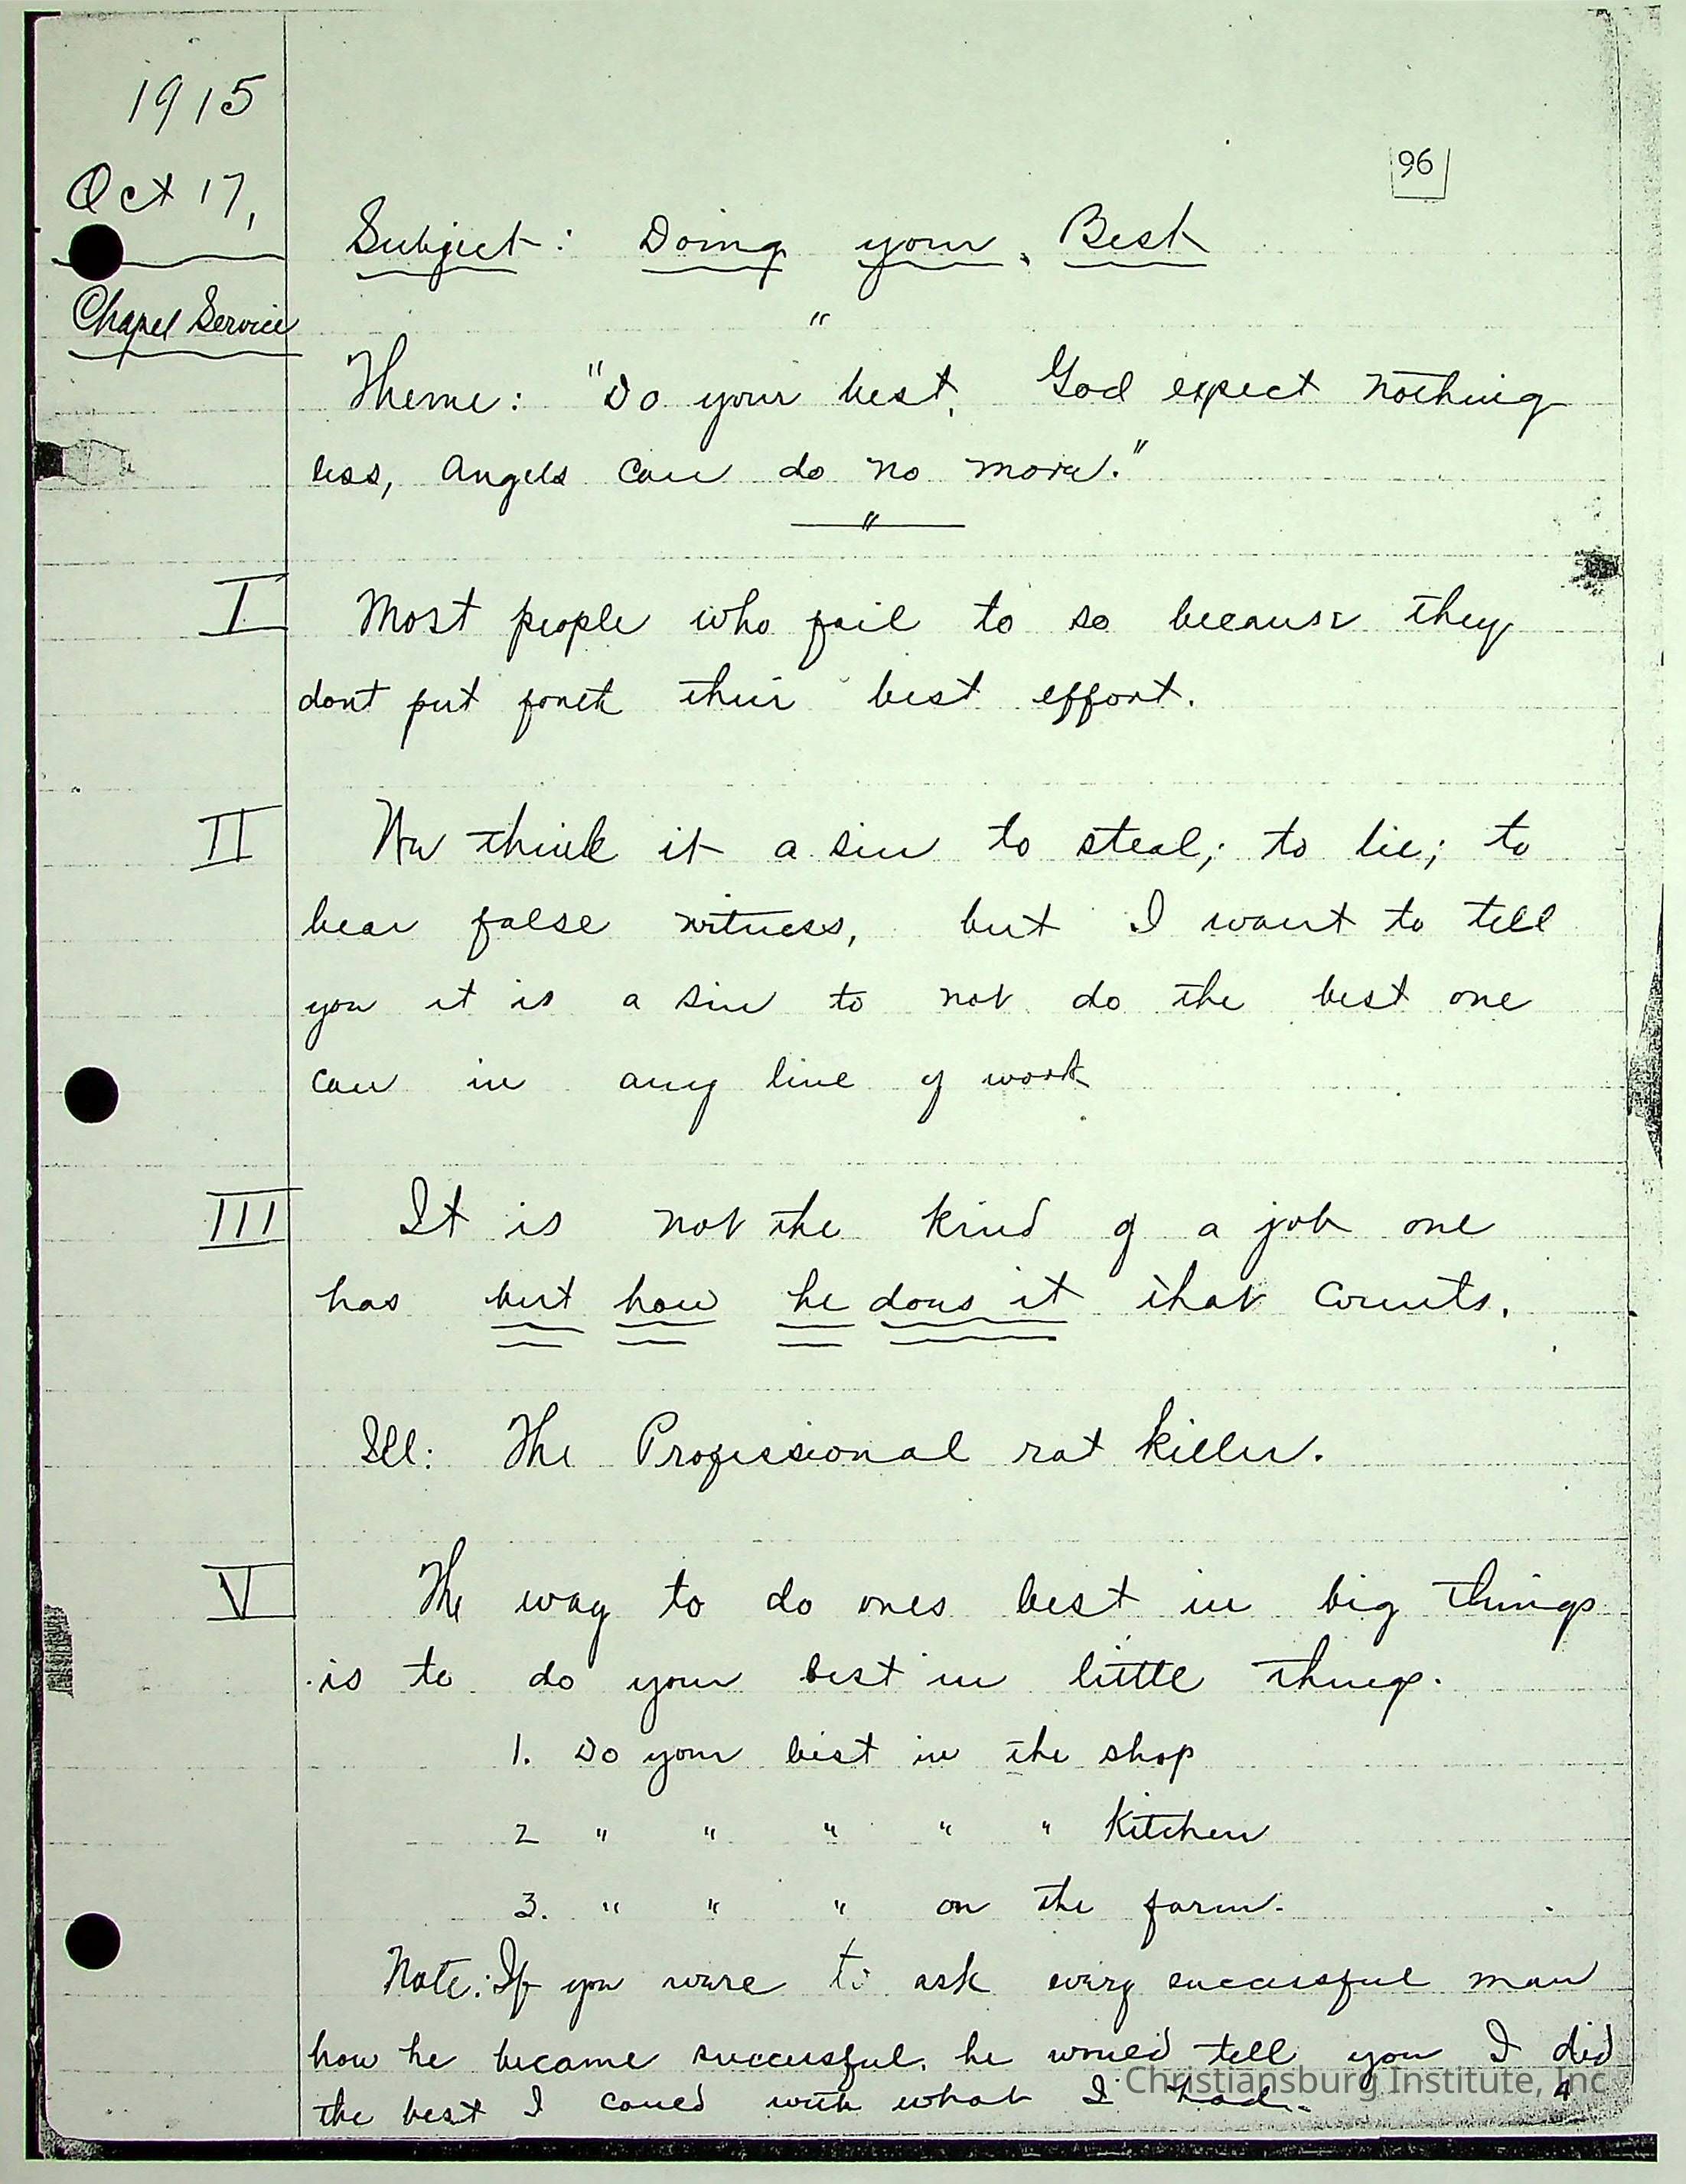 1915
Oct 17,
Chapel Service
96
Subject: Doing your Best
"
Theme: "Do your best, God expect nothing
less, Angels can do no more."
"
I Most people who fail to so because they
dont put forth their best effort.
II We think it a sin to steal; to lie; to
bear false witness, but I want to tell
you it is a sin to not do the best one
can in any line of work
III It is not the kind of a job one
has but how he does it that counts.
Ill: The Professional rat killer.
V The way to do ones best in big things
is to do your best in little things.
1. Do your best in the shop
2 " " " " " Kitchen
3. " " " on the farm.
Note: If you were to ask every successful man
how he became successful, he would tell you I did
the best I could with what I had.
4
Christiansburg Institute, Inc